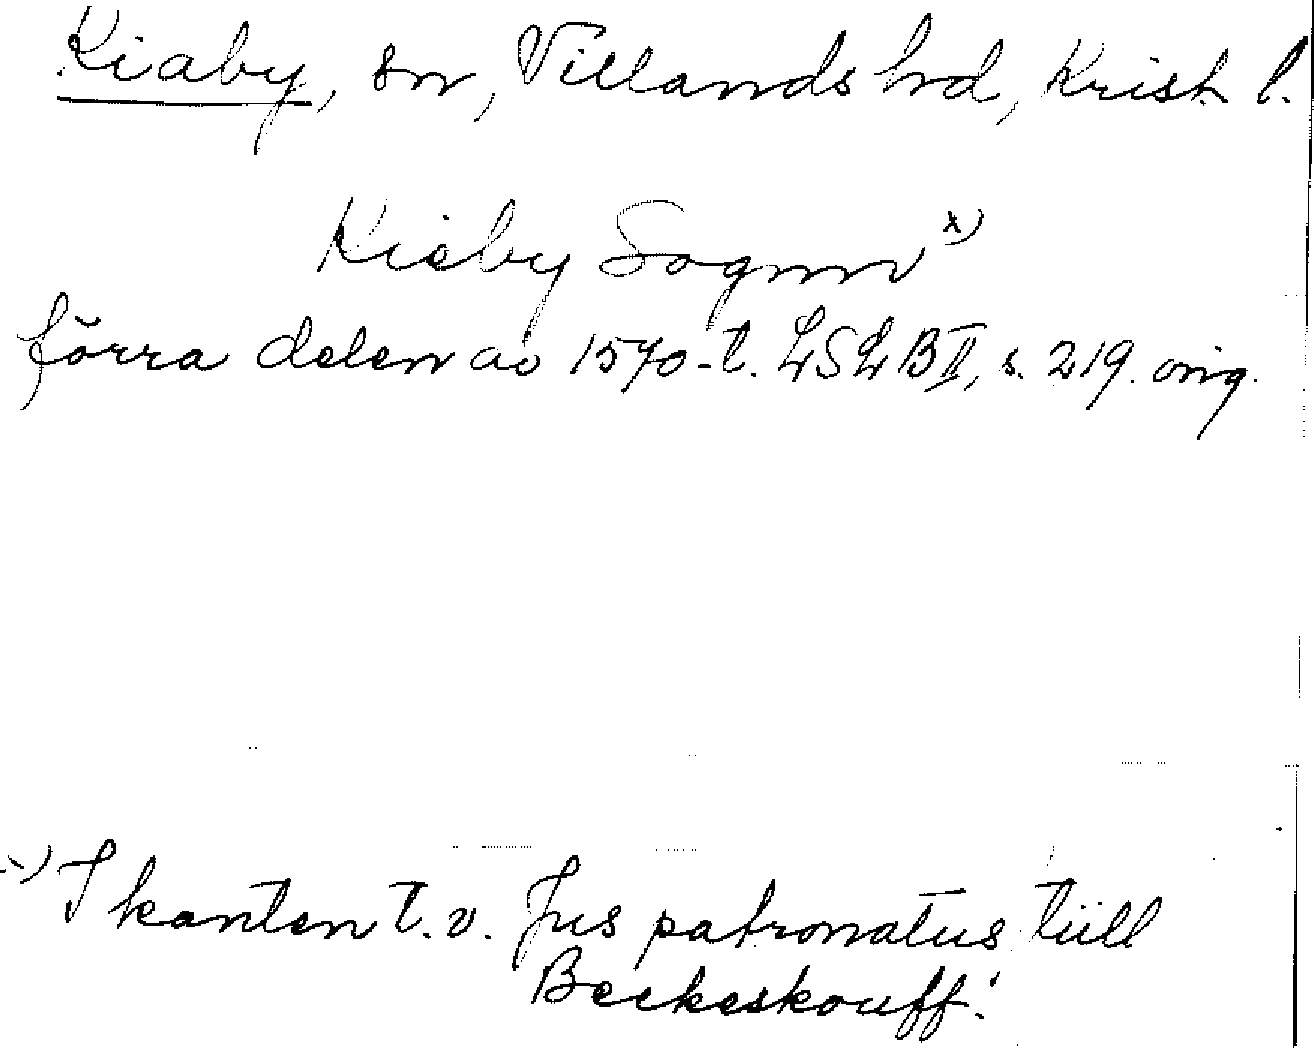 Kiaby, sn, Villands hrd, Krist. l.
Kieby Sognn x)
förra delen av 1570-t. LSLB II, s. 219. orig.
x) I kanten t. v. Jus patronatus tiill
Beckeskouff.'